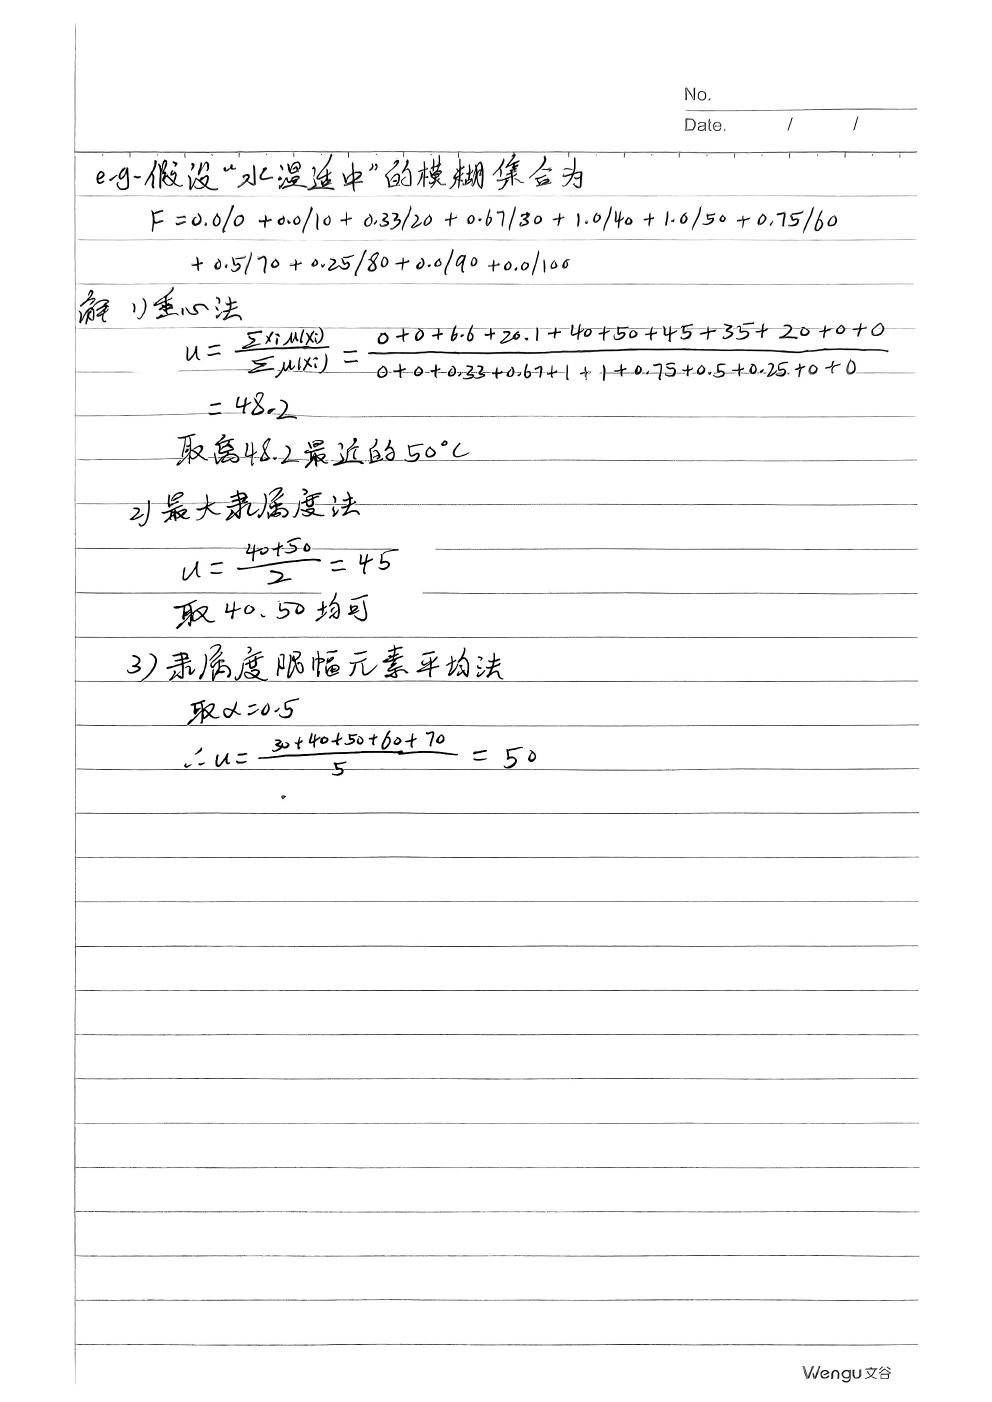 No.
Date. / /
e.g.假设“水温适中”的模糊集合为
F=0.0/0+0.0/10+0.33/20+0.67/30+1.0/40+1.0/50+0.75/60
+0.5/70+0.25/80+0.0/90+0.0/100
解 1)重心法
u=∑xiμ(xi)/∑μ(xi)=(0+0+6.6+20.1+40+50+45+35+20+0+0)/(0+0+0.33+0.67+1+1+0.75+0.5+0.25+0+0)
=48.2
取离48.2最近的50°C
2)最大隶属度法
u=(40+50)/2=45
取40、50均可
3)隶属度限幅元素平均法
取α=0.5
∴u=(30+40+50+60+70)/5=50
Wengu文谷